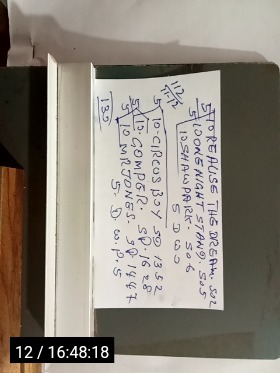 5 TO REAUSE THE DREAM. S02
5 10 ONE NIGHT STAND. S05
10. SHAW PARK. S06
5 D W O
112
11-12
5 10. CIRCUS BOY SP 1352
5 10. COMPER. SP. 1628
5 10 MR JONES. SP 1447
5. D W. P. 5
130
12 / 16:48:18